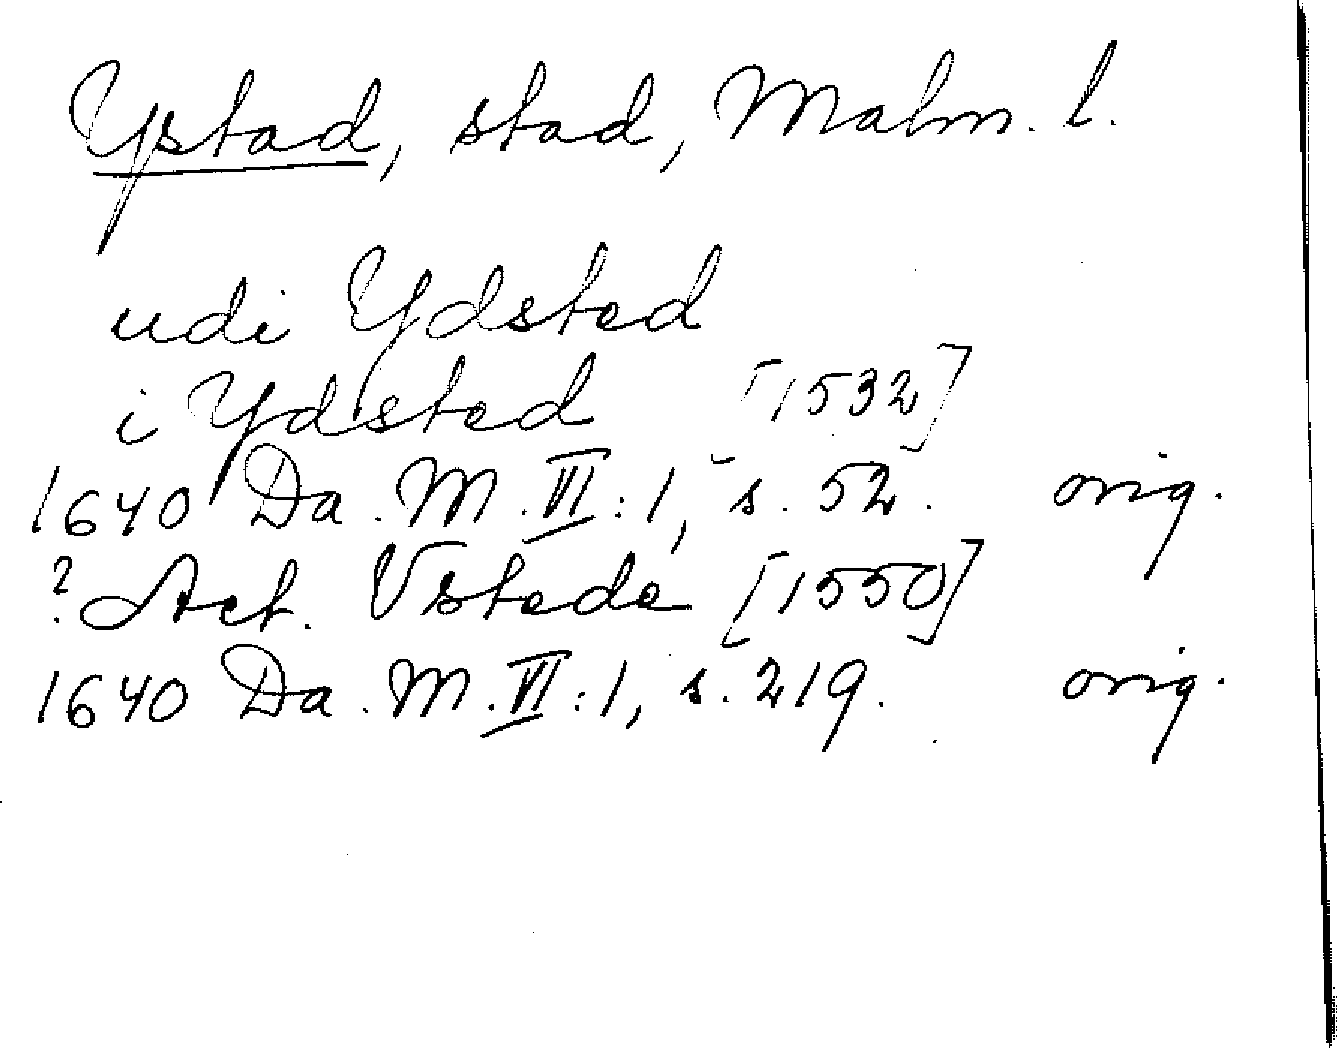 Ystad, stad, Malm. l.
udi Ydsted
i Ydsted [1532]
1640 Da. M. VI: 1, s. 52. orig.
? Act. Vstede [1550]
1640 Da. M. VI: 1, s. 219. orig.